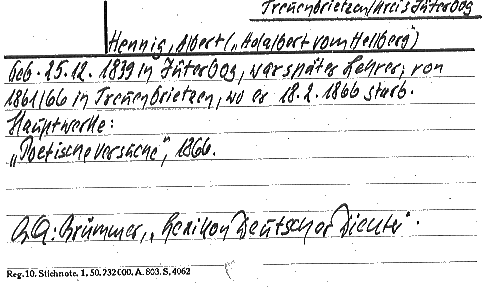 Treuenbrietzen/Kreis Jüterbog
Hennig, Albert („Adalbert vom Hellberg")
Geb. 25.12.1839 in Jüterbog, war später Lehrer, von
1861/66 in Treuenbrietzen, wo er 18.2.1866 starb.
Hauptwerke:
„Poetische Versuche", 1866.
Brümmer, „Lexikon Deutscher Dichter".
Reg. 10. Stichnote. 1. 50. 232 000. A. 803. S. 4062